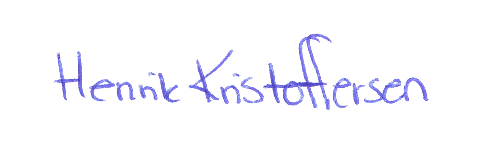 Henrik Kristoffersen